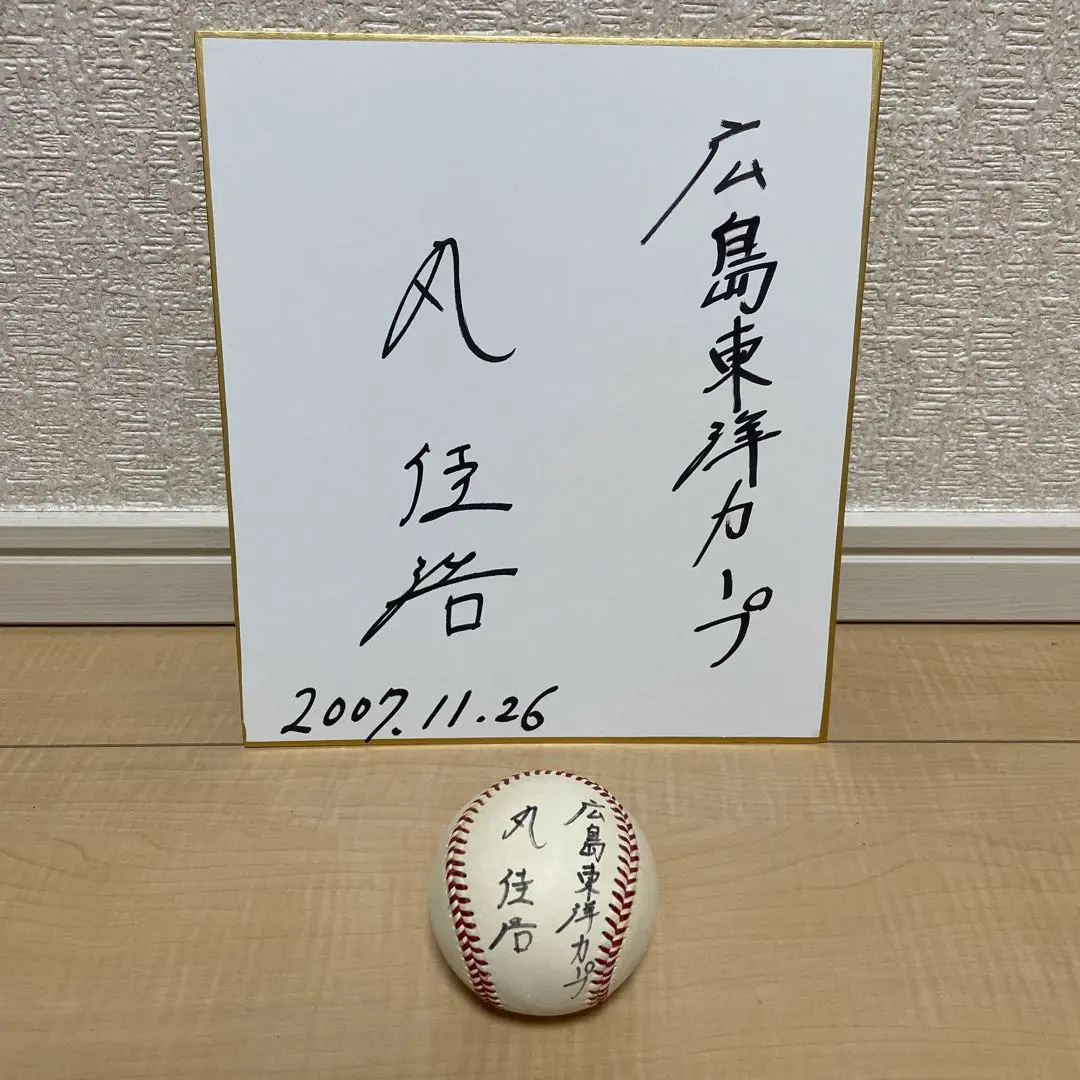 広島東洋カープ
丸佳浩
2007.11.26
広島東洋カープ
丸佳浩